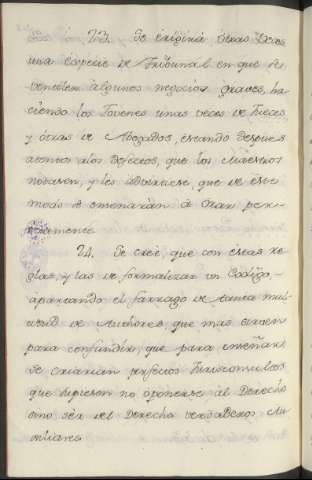 23. Se erigirá otras veces
una especie de Tribunal en que se
ventilen algunos negocios graves, ha-
ciendo los Jovenes unas veces de Jueces,
y otras de Abogados, estando despues
atentos a los defectos, que los Maestros
notasen, y les advirtiese, que de este
modo se enseñarán à orar peri-
tisimamente.
24. Se cree, que con estas re-
glas, y las de formalizar un Codigo,
apartando el farrago de tanta mul-
titud de Autores que mas sirven
para confundir, que para enseñar,
se criarian perfectos Jurisconsultos
que supiesen no oponerse al Derecho
sino ser del Derecho verdaderos Au-
xiliares.